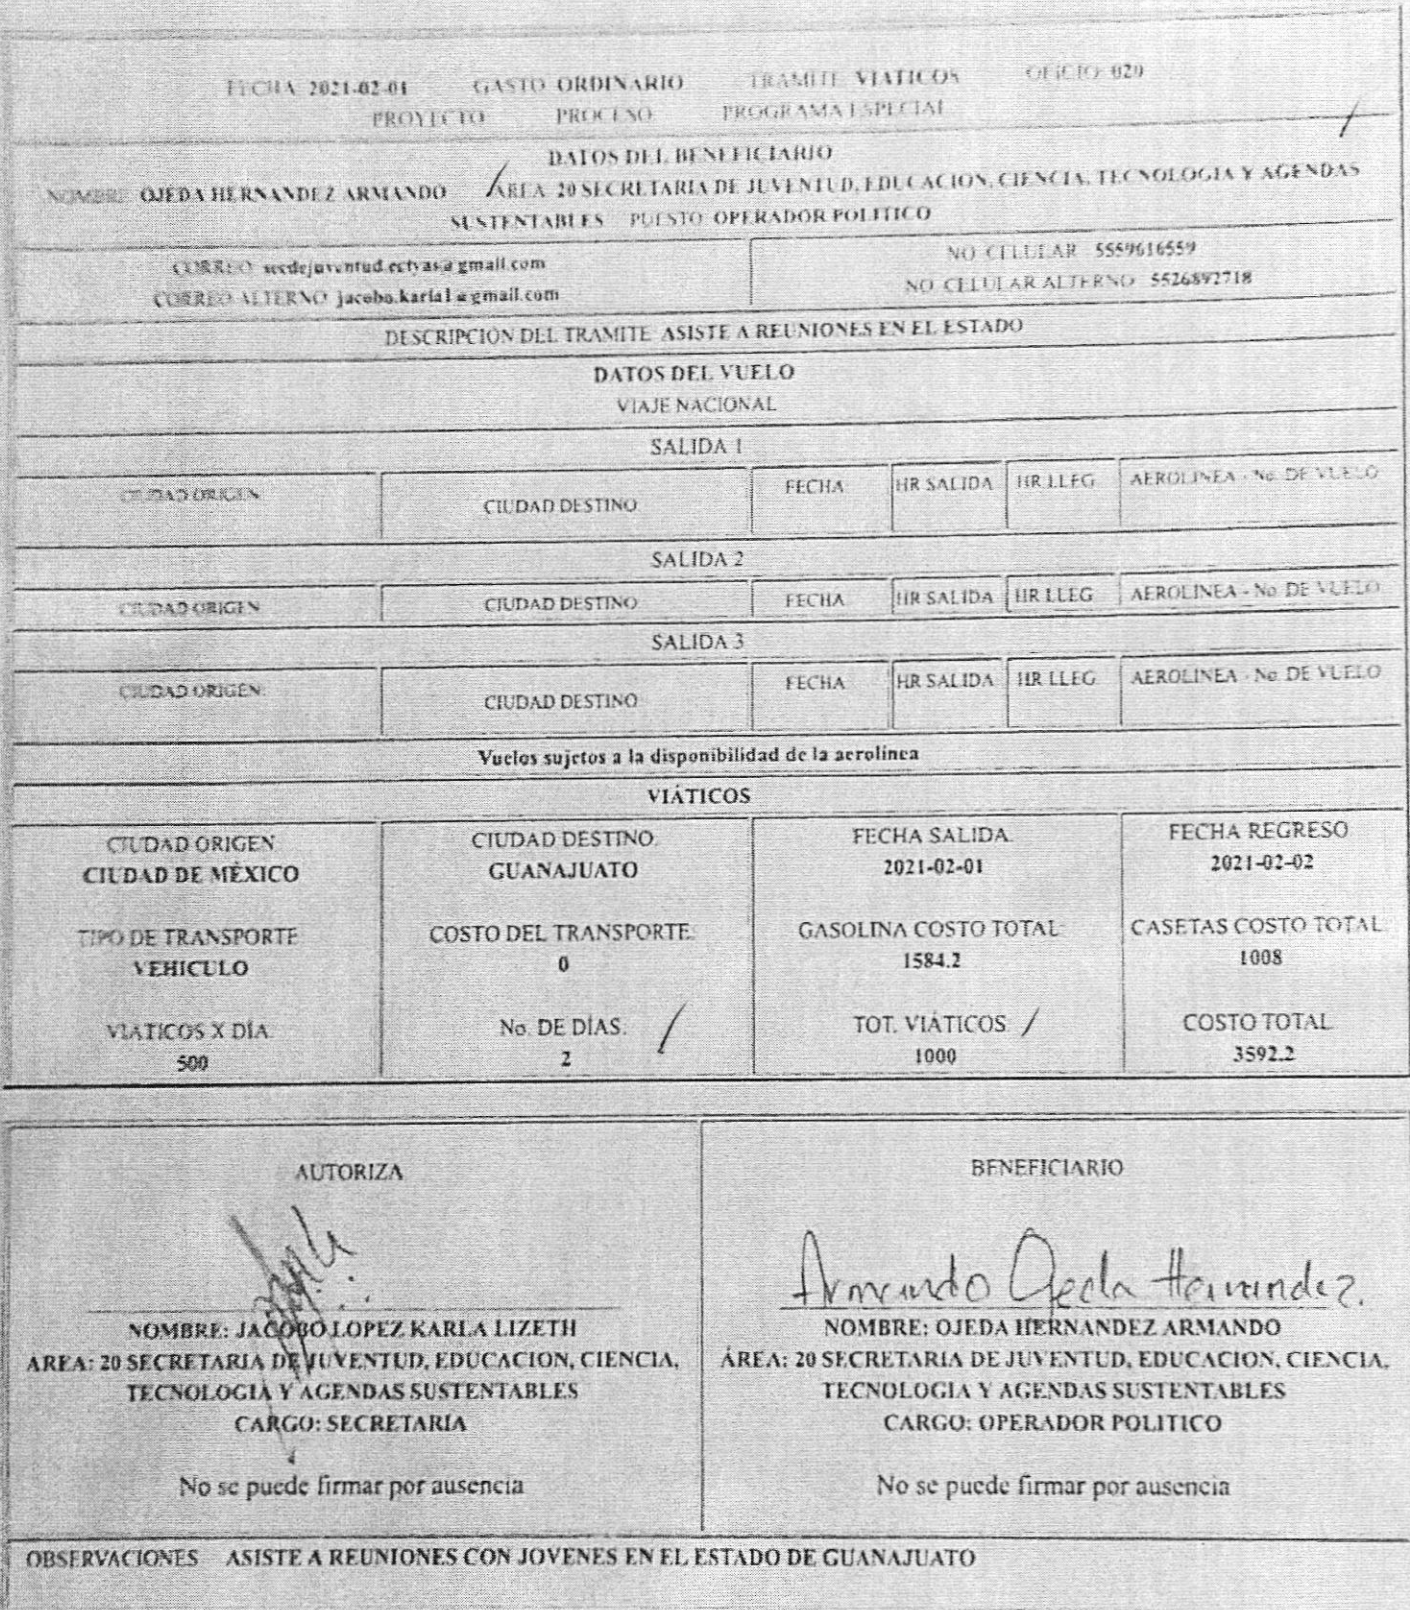 FECHA 2021-02-01 GASTO ORDINARIO TRAMITE VIATICOS OFICIO 020
PROYECTO PROCESO PROGRAMA ESPECIAL
DATOS DEL BENEFICIARIO
NOMBRE OJEDA HERNANDEZ ARMANDO AREA 20 SECRETARIA DE JUVENTUD, EDUCACION, CIENCIA, TECNOLOGIA Y AGENDAS
SUSTENTABLES PUESTO OPERADOR POLITICO
CORREO secdejuventud.ectyas@gmail.com NO CELULAR 5559616559
CORREO ALTERNO jacobo.karla1@gmail.com NO CELULAR ALTERNO 5526892718
DESCRIPCION DEL TRAMITE ASISTE A REUNIONES EN EL ESTADO
DATOS DEL VUELO
VIAJE NACIONAL
SALIDA 1
CIUDAD ORIGEN CIUDAD DESTINO FECHA HR SALIDA HR LLEG AEROLINEA - No. DE VUELO
SALIDA 2
CIUDAD ORIGEN CIUDAD DESTINO FECHA HR SALIDA HR LLEG AEROLINEA - No. DE VUELO
SALIDA 3
CIUDAD ORIGEN CIUDAD DESTINO FECHA HR SALIDA HR LLEG AEROLINEA - No. DE VUELO
Vuelos sujetos a la disponibilidad de la aerolínea
VIÁTICOS
CIUDAD ORIGEN CIUDAD DESTINO. FECHA SALIDA. FECHA REGRESO
CIUDAD DE MÉXICO GUANAJUATO 2021-02-01 2021-02-02
TIPO DE TRANSPORTE COSTO DEL TRANSPORTE. GASOLINA COSTO TOTAL CASETAS COSTO TOTAL
VEHICULO 0 1584.2 1008
VIATICOS X DÍA. No. DE DÍAS. TOT. VIÁTICOS COSTO TOTAL
500 2 1000 3592.2
AUTORIZA
BENEFICIARIO
Armando Ojeda Hernandez.
NOMBRE: JACOBO LOPEZ KARLA LIZETH
AREA: 20 SECRETARIA DE JUVENTUD, EDUCACION, CIENCIA,
TECNOLOGIA Y AGENDAS SUSTENTABLES
CARGO: SECRETARIA
No se puede firmar por ausencia
NOMBRE: OJEDA HERNANDEZ ARMANDO
ÁREA: 20 SECRETARIA DE JUVENTUD, EDUCACION, CIENCIA,
TECNOLOGIA Y AGENDAS SUSTENTABLES
CARGO: OPERADOR POLITICO
No se puede firmar por ausencia
OBSERVACIONES ASISTE A REUNIONES CON JOVENES EN EL ESTADO DE GUANAJUATO